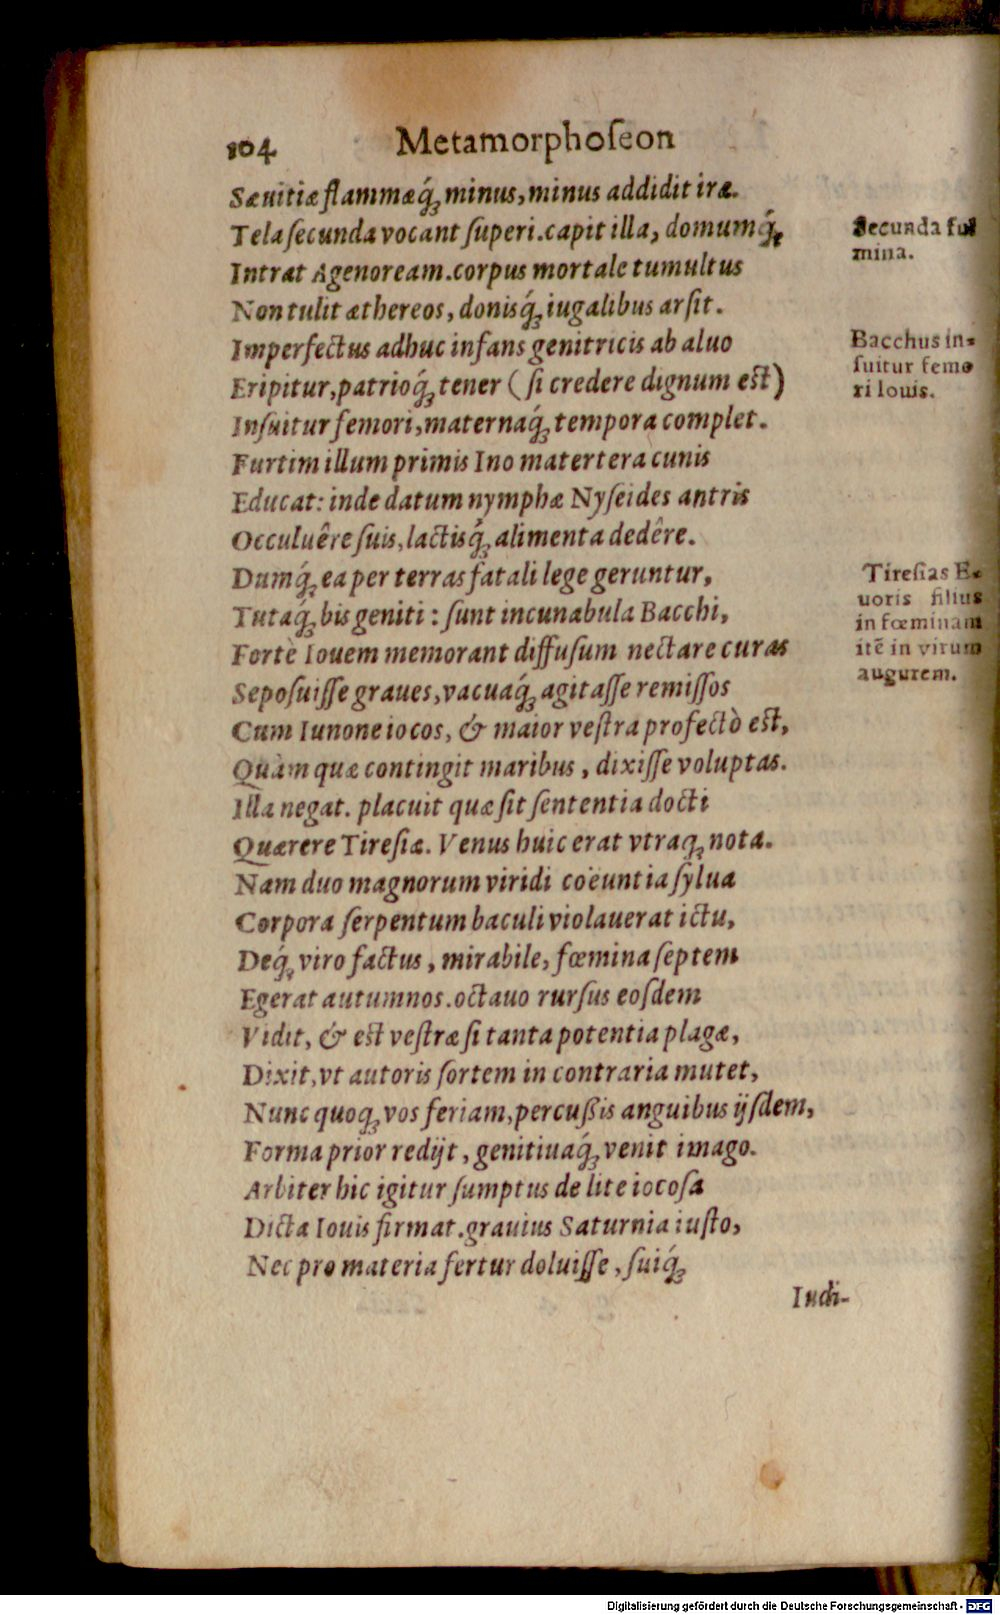 104 Metamorphoſeon
Sæuitiæ flammæq́ꝫ minus, minus addidit iræ.
Tela ſecunda vocant ſuperi. capit illa, domumq́ꝫ
Intrat Agenoream. corpus mortale tumultus
Non tulit æthereos, donisq́ꝫ iugalibus arſit.
Imperfectus adhuc infans genitricis ab aluo
Eripitur, patrioq́ꝫ tener (ſi credere dignum eſt)
Inſuitur femori, maternaq́ꝫ tempora complet.
Furtim illum primis Ino matertera cunis
Educat: inde datum nymphæ Nyſeides antris
Occuluêre ſuis, lactisq́ꝫ alimenta dedêre.
Dumq́ꝫ ea per terras fatali lege geruntur,
Tutaq́ꝫ bis geniti: ſunt incunabula Bacchi,
Fortè Iouem memorant diffuſum nectare curas
Sepoſuiſſe graues, vacuaq́ꝫ agitaſſe remiſſos
Cum Iunone iocos, & maior veſtra profectò eſt,
Quàm quæ contingit maribus, dixiſſe voluptas.
Illa negat. placuit quæ ſit ſententia docti
Quærere Tireſiæ. Venus huic erat vtraqꝫ nota.
Nam duo magnorum viridi coëuntia ſylua
Corpora ſerpentum baculi violauerat ictu,
Deq́ꝫ viro factus, mirabile, fœmina ſeptem
Egerat autumnos. octauo rurſus eoſdem
Vidit, & eſt veſtræ ſi tanta potentia plagæ,
Dixit, vt autoris ſortem in contraria mutet,
Nunc quoqꝫ vos feriam, percußis anguibus ijſdem,
Forma prior redijt, genitiuaq́ꝫ venit imago.
Arbiter hic igitur ſumptus de lite iocoſa
Dicta Iouis firmat. grauius Saturnia iuſto,
Nec pro materia fertur doluiſſe, ſuiq́ꝫ
Iudi-
Secunda ful
mina.
Bacchus in-
ſuitur femo
ri Iouis.
Tireſias E-
uoris filius
in fœminam
itē in virum
augurem.
Digitalisierung gefördert durch die Deutsche Forschungsgemeinschaft - DFG